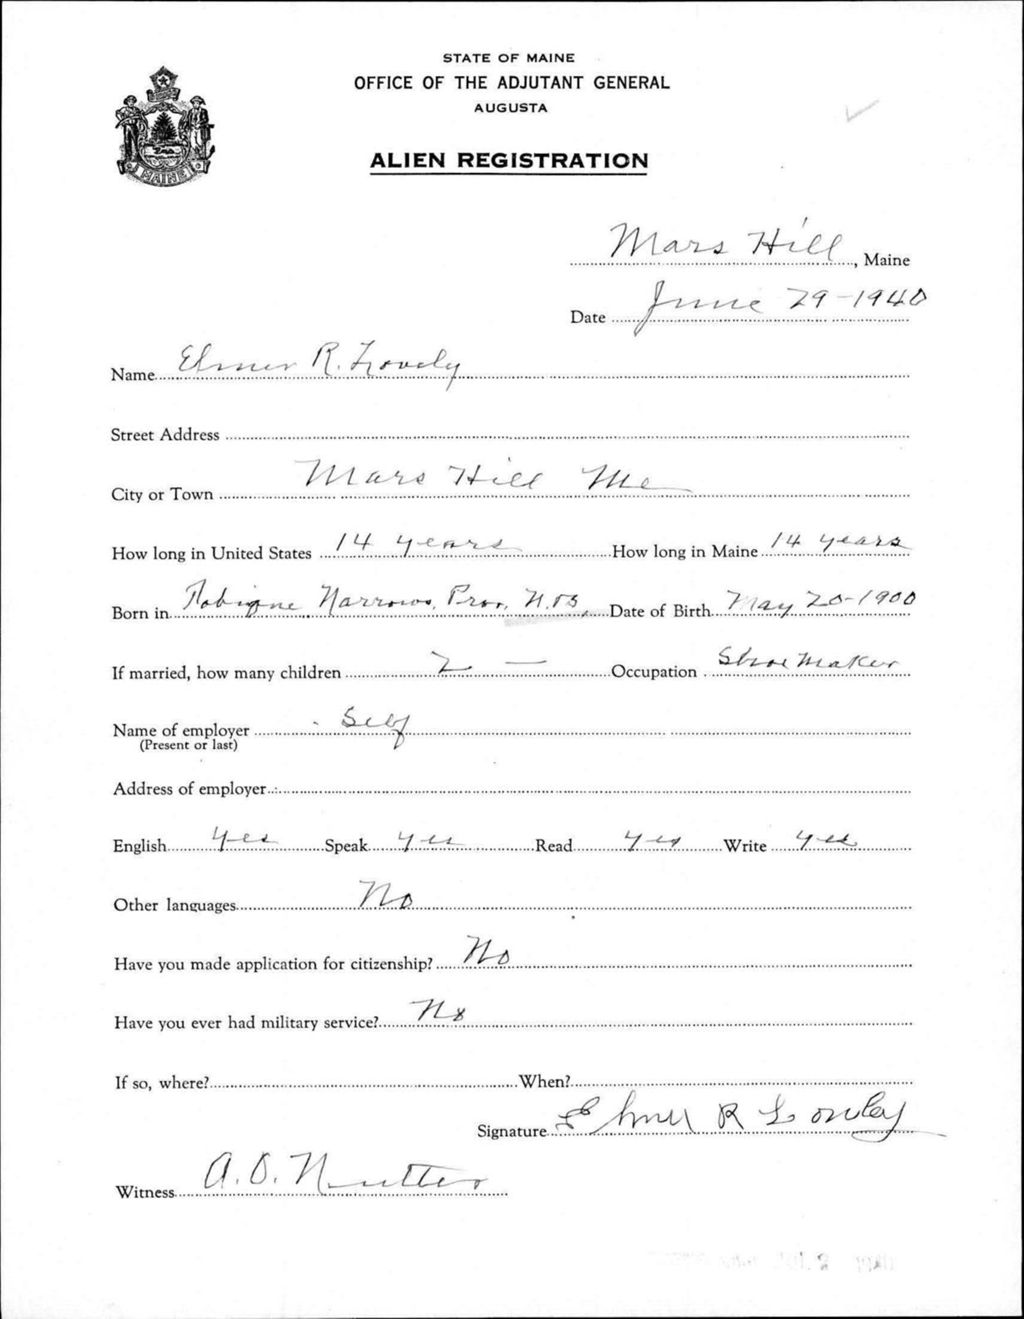 STATE OF MAINE
OFFICE OF THE ADJUTANT GENERAL
AUGUSTA
MAINE
ALIEN REGISTRATION
Mars Hill, Maine
Date June 29-1940
Name Elmer R. Lovely
Street Address
City or Town Mars Hill Me
How long in United States 14 years How long in Maine 14 years
Born in Tobique Narrows, Prov, N.B, Date of Birth May 20-1900
If married, how many children 2 — Occupation Shoe Maker
Name of employer Self
(Present or last)
Address of employer
English yes Speak yes Read yes Write yes
Other languages No
Have you made application for citizenship? No
Have you ever had military service? No
If so, where? When?
Signature Elmer R Lovely
Witness A. O. Nutter